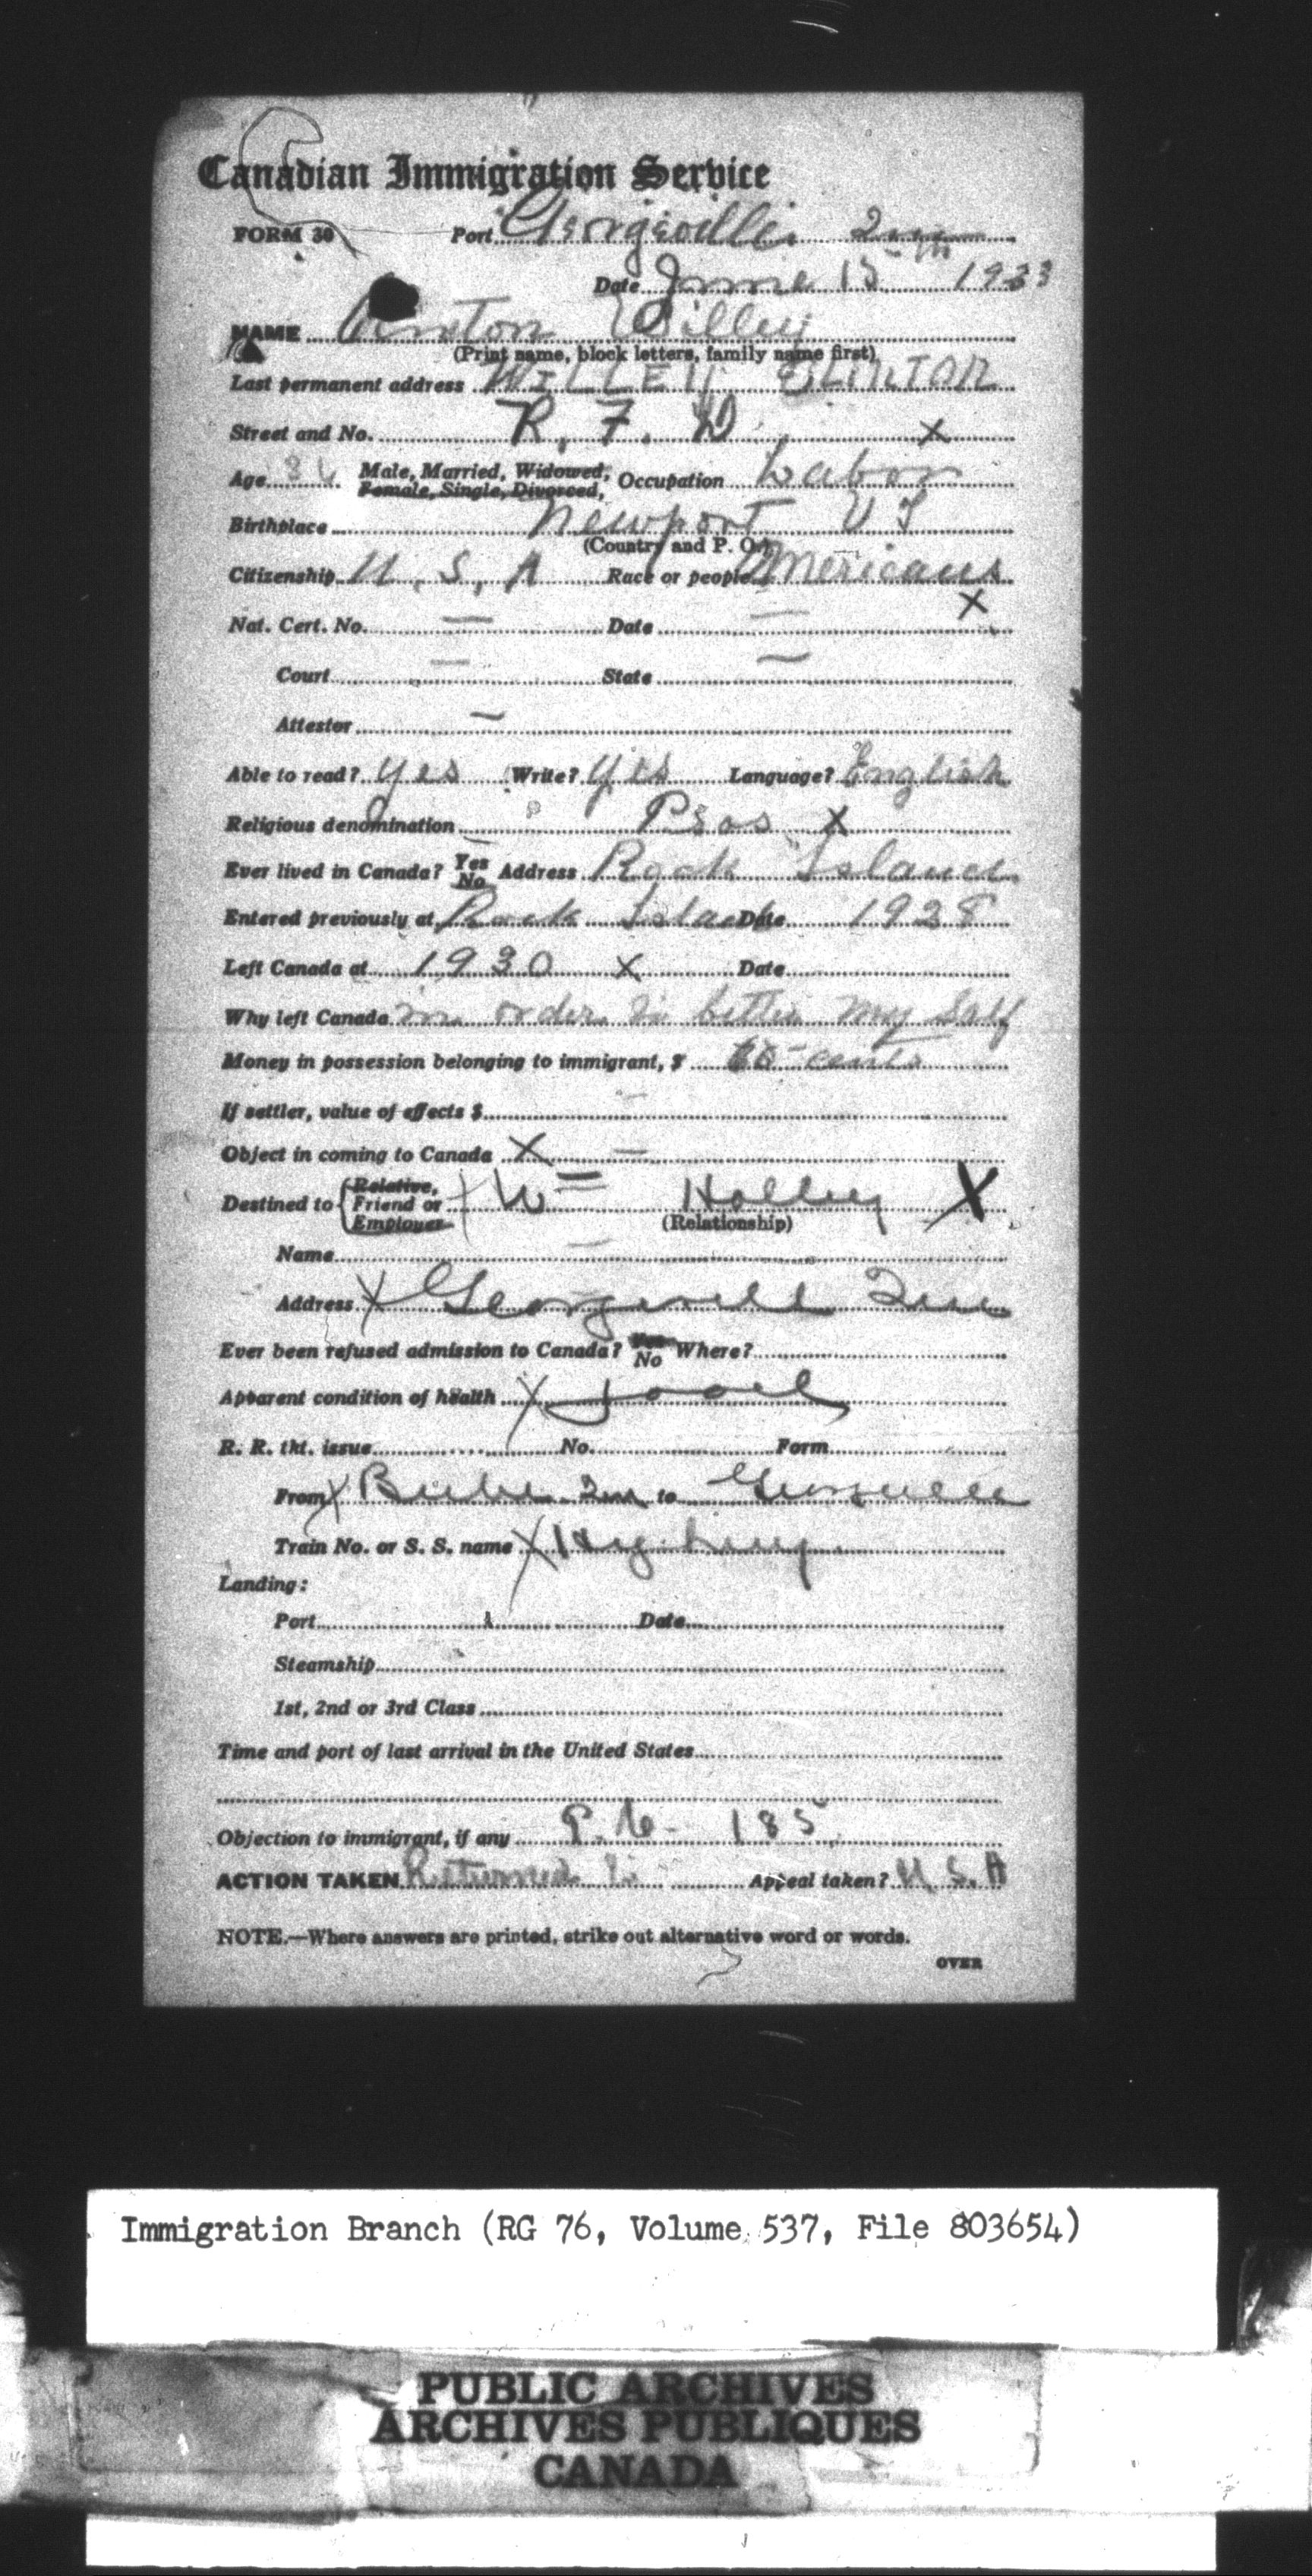 Canadian Immigration Service
FORM 30 Port Georgeville Que
Date June 15th 1933
NAME Willey
(Print name, block letters, family name first)
Last permanent address WILLEY
Street and No. R. F. D. X
Age Male, Married, Widowed, Female, Single, Divorced, Occupation Labor
Birthplace Newport VT
(Country and P. O.)
Citizenship U. S. A Race or people Americans
X
Nat. Cert. No. — Date —
Court — State —
Attestor —
Able to read? yes Write? yes Language? English
Religious denomination X
Ever lived in Canada? Yes No Address Rock Island
Entered previously at Rock Island Date 1928
Left Canada at 1930 X Date
Why left Canada in order to better my Self
Money in possession belonging to immigrant, $ cents
If settler, value of effects $ —
Object in coming to Canada X —
Destined to { Relative, Friend or Employer X W = Holley X
(Relationship)
Name —
Address X Georgeville Que
Ever been refused admission to Canada? Yes No Where?
Apparent condition of health X good
R. R. tkt. issue No. Form
From X Beebe Que to Georgeville
Train No. or S. S. name X Highway
Landing:
Port Date
Steamship
1st, 2nd or 3rd Class
Time and port of last arrival in the United States
Objection to immigrant, if any P. C. - 185
ACTION TAKEN Returned to Appeal taken? U. S. A
NOTE.—Where answers are printed, strike out alternative word or words.
OVER
Immigration Branch (RG 76, Volume 537, File 803654)
PUBLIC ARCHIVES
ARCHIVES PUBLIQUES
CANADA